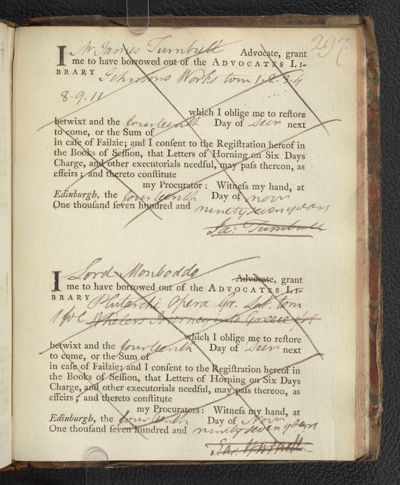 297
I Mr James Turnbull Advocate, grant
me to have borrowed out of the ADVOCATES LI-
BRARY Johnsons Works tom 1. 2. 3. 4
8. 9. 11
which I oblige me to reſtore
betwixt and the fourteenth Day of next
to come, or the Sum of
in caſe of Failzie; and I conſent to the Regiſtration hereof in
the Books of Seſſion, that Letters of Horning on Six Days
Charge, and other executorials needful, may paſs thereon, as
effeirs; and thereto conſtitute
my Procurator: Witneſs my hand, at
Edinburgh, the fourteenth Day of Novr
One thouſand ſeven hundred and ninety seven years
Ja: Turnbull
I Lord Monboddo Advocate, grant
me to have borrowed out of the ADVOCATES LI-
BRARY Plutarchi Opera gr. Lat. tom
1 & Wheelers Journey into Greece
which I oblige me to reſtore
betwixt and the fourteenth Day of next
to come, or the Sum of
in caſe of Failzie; and I conſent to the Regiſtration hereof in
the Books of Seſſion, that Letters of Horning on Six Days
Charge, and other executorials needful, may paſs thereon, as
effeirs; and thereto conſtitute
my Procurators: Witneſs my hand, at
Edinburgh, the fourteenth Day of Novr
One thouſand ſeven hundred and ninety seven years
Ja: